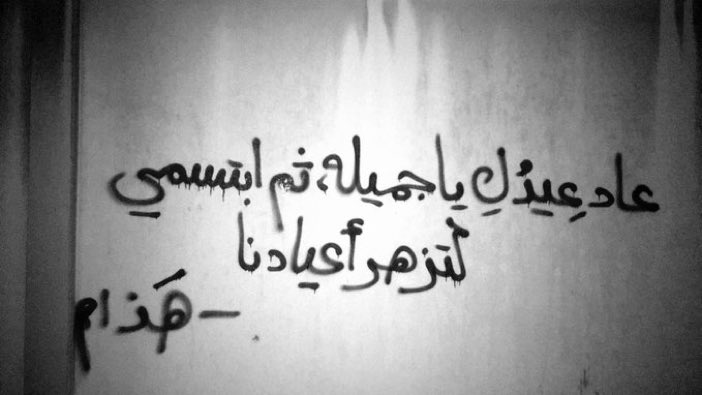 عاد عِيدُكِ يا جميله، ثم ابتسمي
لتزهر أعيادنا
- هَذام